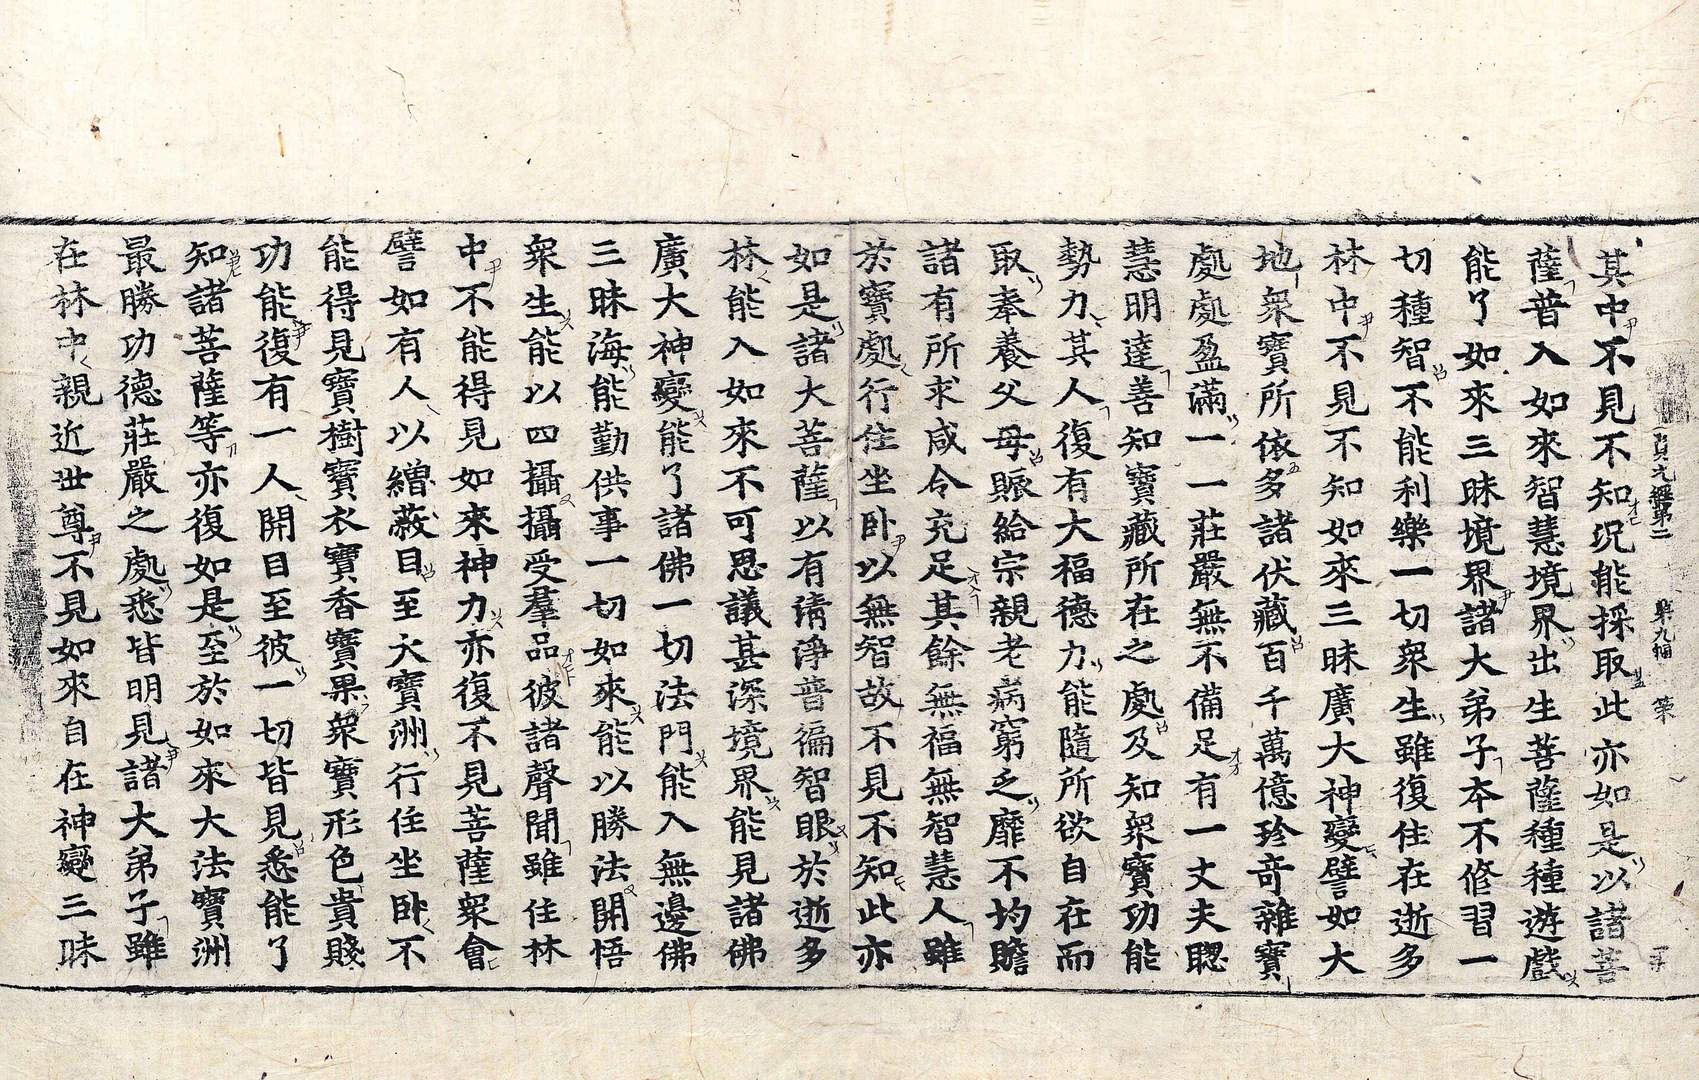 其中不見不知況能採取此亦如是以諸菩
薩普入如來智慧境界出生菩薩種種遊戲
能了如來三昧境界諸大弟子本不修習一
切種智不能利樂一切衆生雖復住在逝多
林中不見不知如來三昧廣大神變譬如大
地衆寶所依多諸伏藏百千萬億珍奇雜寶
處處盈滿一一莊嚴無不備足有一丈夫聰
慧明達善知寶藏所在之處及知衆寶功能
勢力其人復有大福德力能隨所欲自在而
取奉養父母賑給宗親老病窮乏靡不均贍
諸有所求咸令充足其餘無福無智慧人雖
於寶處行住坐卧以無智故不見不知此亦
如是諸大菩薩以有清淨普徧智眼於逝多
林能入如來不可思議甚深境界能見諸佛
廣大神變能了諸佛一切法門能入無邊佛
三昧海能勤供事一切如來能以勝法開悟
衆生能以四攝攝受羣品彼諸聲聞雖住林
中不能得見如來神力亦復不見菩薩衆會
譬如有人以繒蔽目至大寶洲行住坐卧不
能得見寶樹寶衣寶香寶果衆寶形色貴賤
功能復有一人開目至彼一切皆見悉能了
知諸菩薩等亦復如是至於如來大法寶洲
最勝功德莊嚴之處悉皆明見諸大弟子雖
在林中親近世尊不見如來自在神變三昧